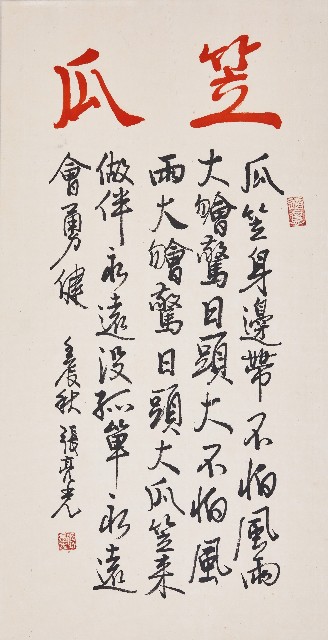 瓜笠
瓜笠身邊帶不怕風雨
大𣍐驚日頭大不怕風
雨大𣍐驚日頭大瓜笠来
做伴永遠没孤單永遠
會勇健 壬辰秋 張亮光